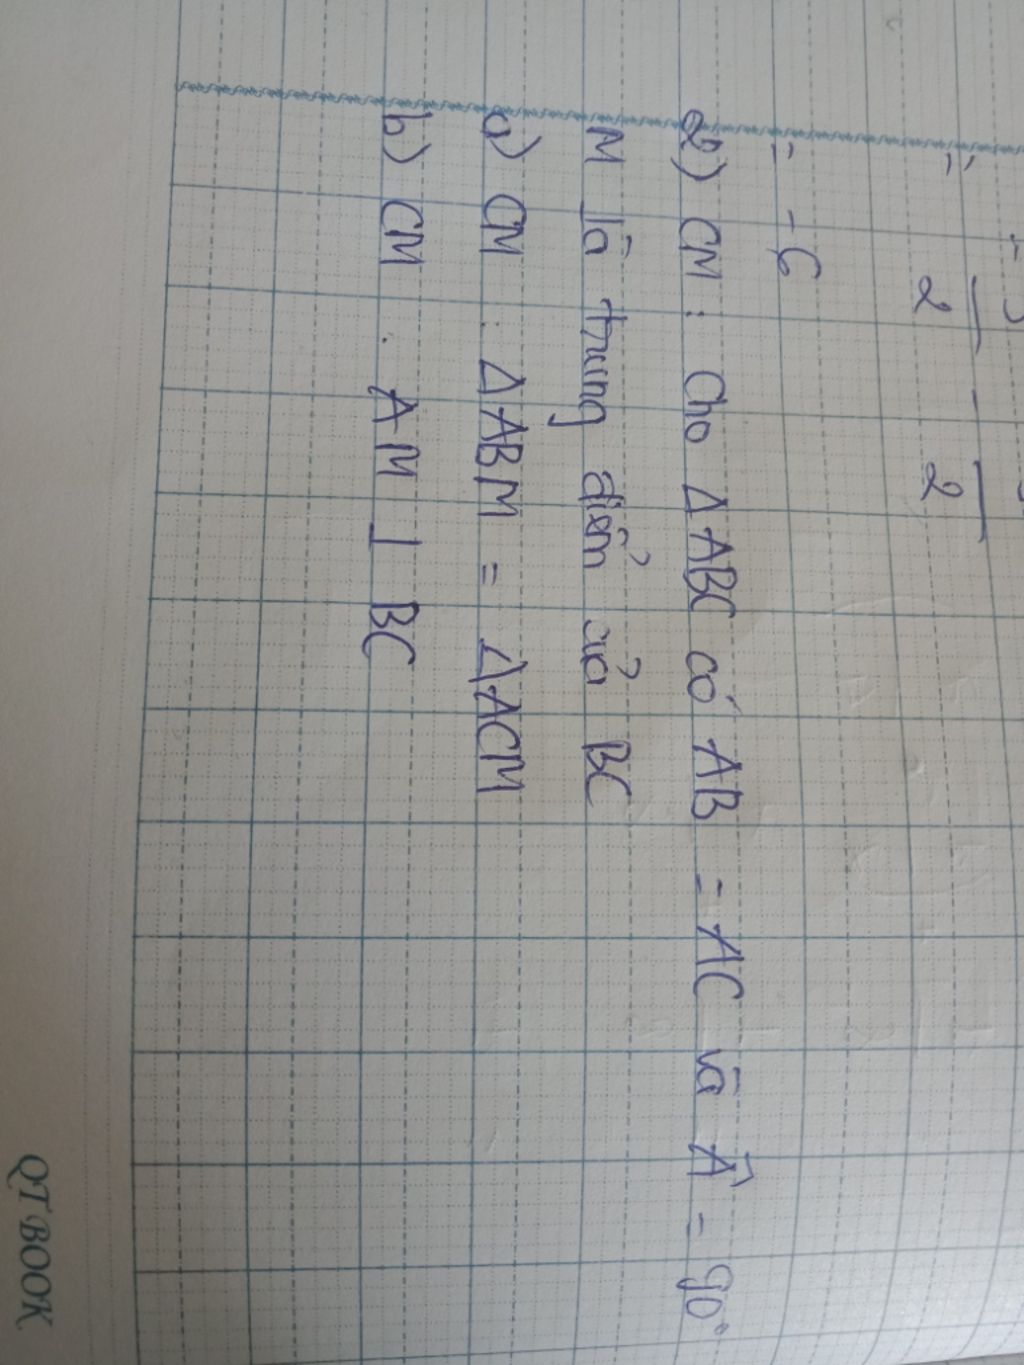 - 6
2) CM : Cho ΔABC có AB = AC và Â = 90°
M là trung điểm của BC
a) CM : ΔABM = ΔACM
b) CM : AM ⊥ BC
QT BOOK